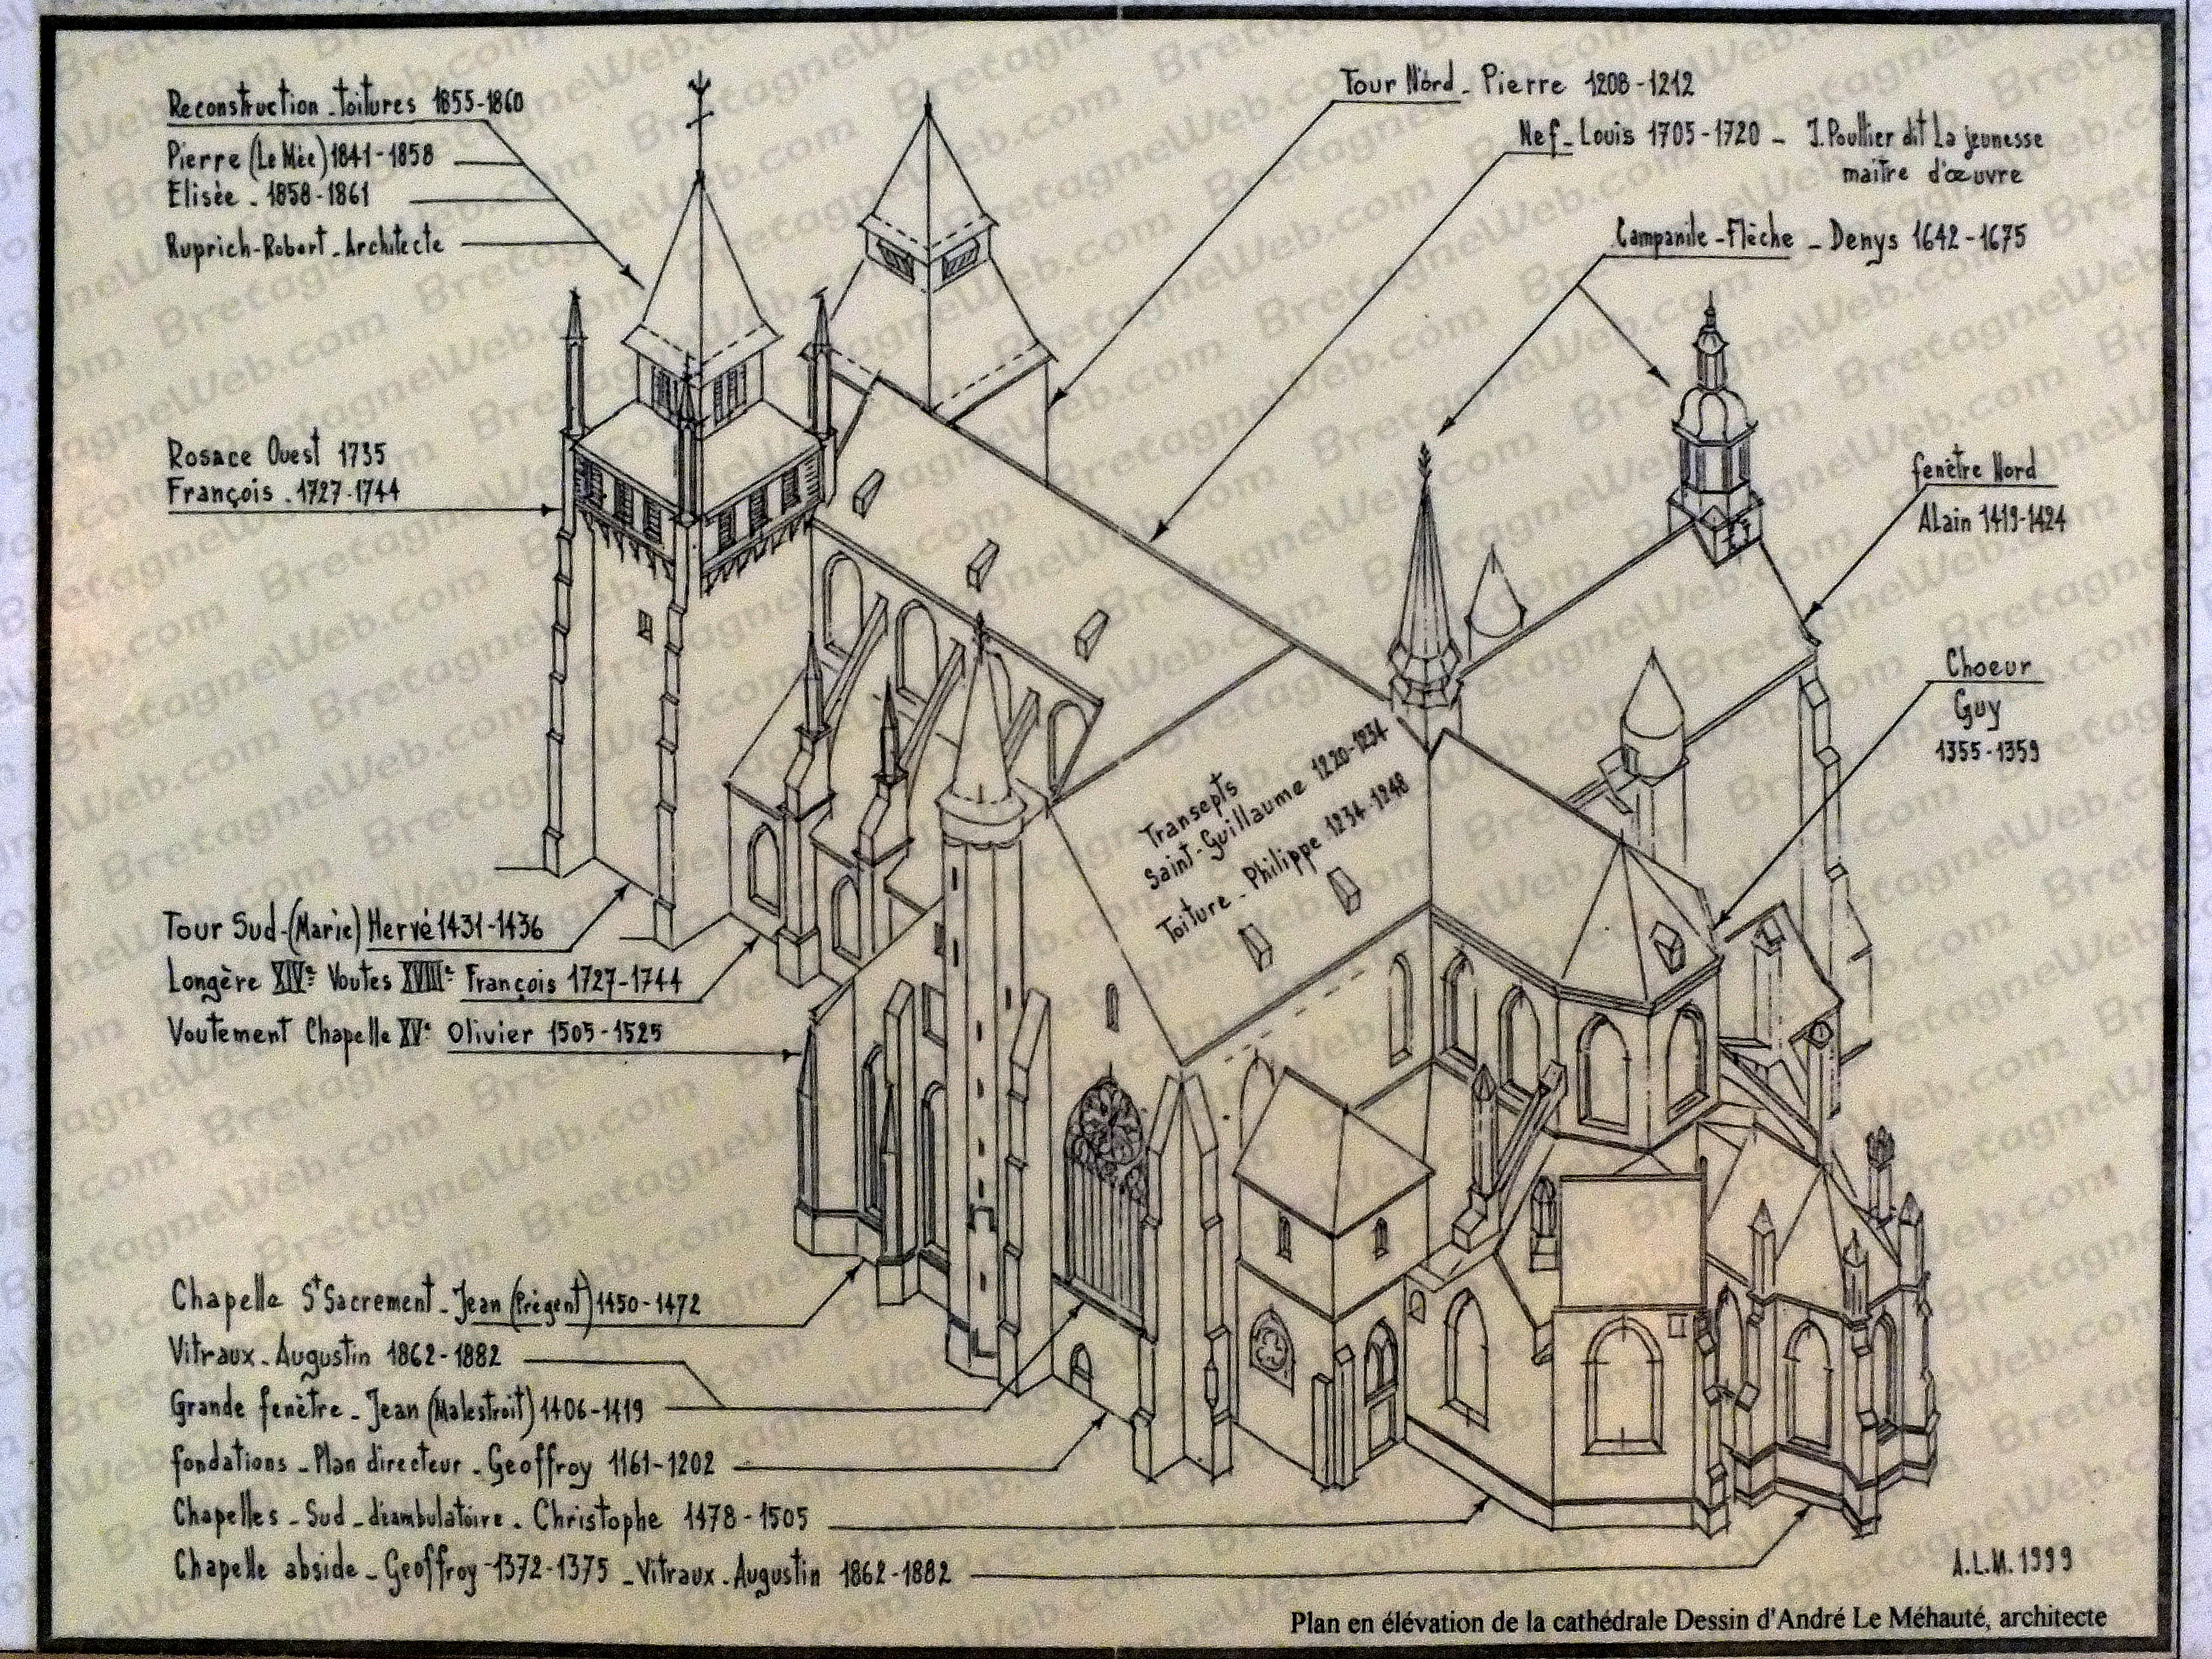 Reconstruction - toitures 1855-1860
Pierre (Le Mée) 1841-1858
Elisée - 1858-1861
Ruprich-Robert - Architecte
Rosace Ouest 1735
François - 1727-1744
Tour Sud - (Marie) Hervé 1431-1436
Longère XIVe Voutes XVIIIe François 1727-1744
Voutement Chapelle XVe Olivier 1505-1525
Chapelle St Sacrement - Jean (Prégent) 1450-1472
Vitraux - Augustin 1862-1882
Grande fenêtre - Jean (Malestroit) 1406-1419
fondations - Plan directeur - Geoffroy 1161-1202
Chapelles - Sud - déambulatoire - Christophe 1478-1505
Chapelle abside - Geoffroy - 1372-1375 - Vitraux - Augustin 1862-1882
Tour Nord - Pierre 1208-1212
Nef - Louis 1705-1720 - J. Poullier dit La jeunesse
maître d'œuvre
Campanile - Flèche - Denys 1642-1675
fenêtre Nord
Alain 1419-1424
Choeur
Guy
1355-1359
Transepts
Saint-Guillaume 1220-1234
Toiture - Philippe 1234-1248
A.L.M. 1999
Plan en élévation de la cathédrale Dessin d'André Le Méhauté, architecte
BretagneWeb.com